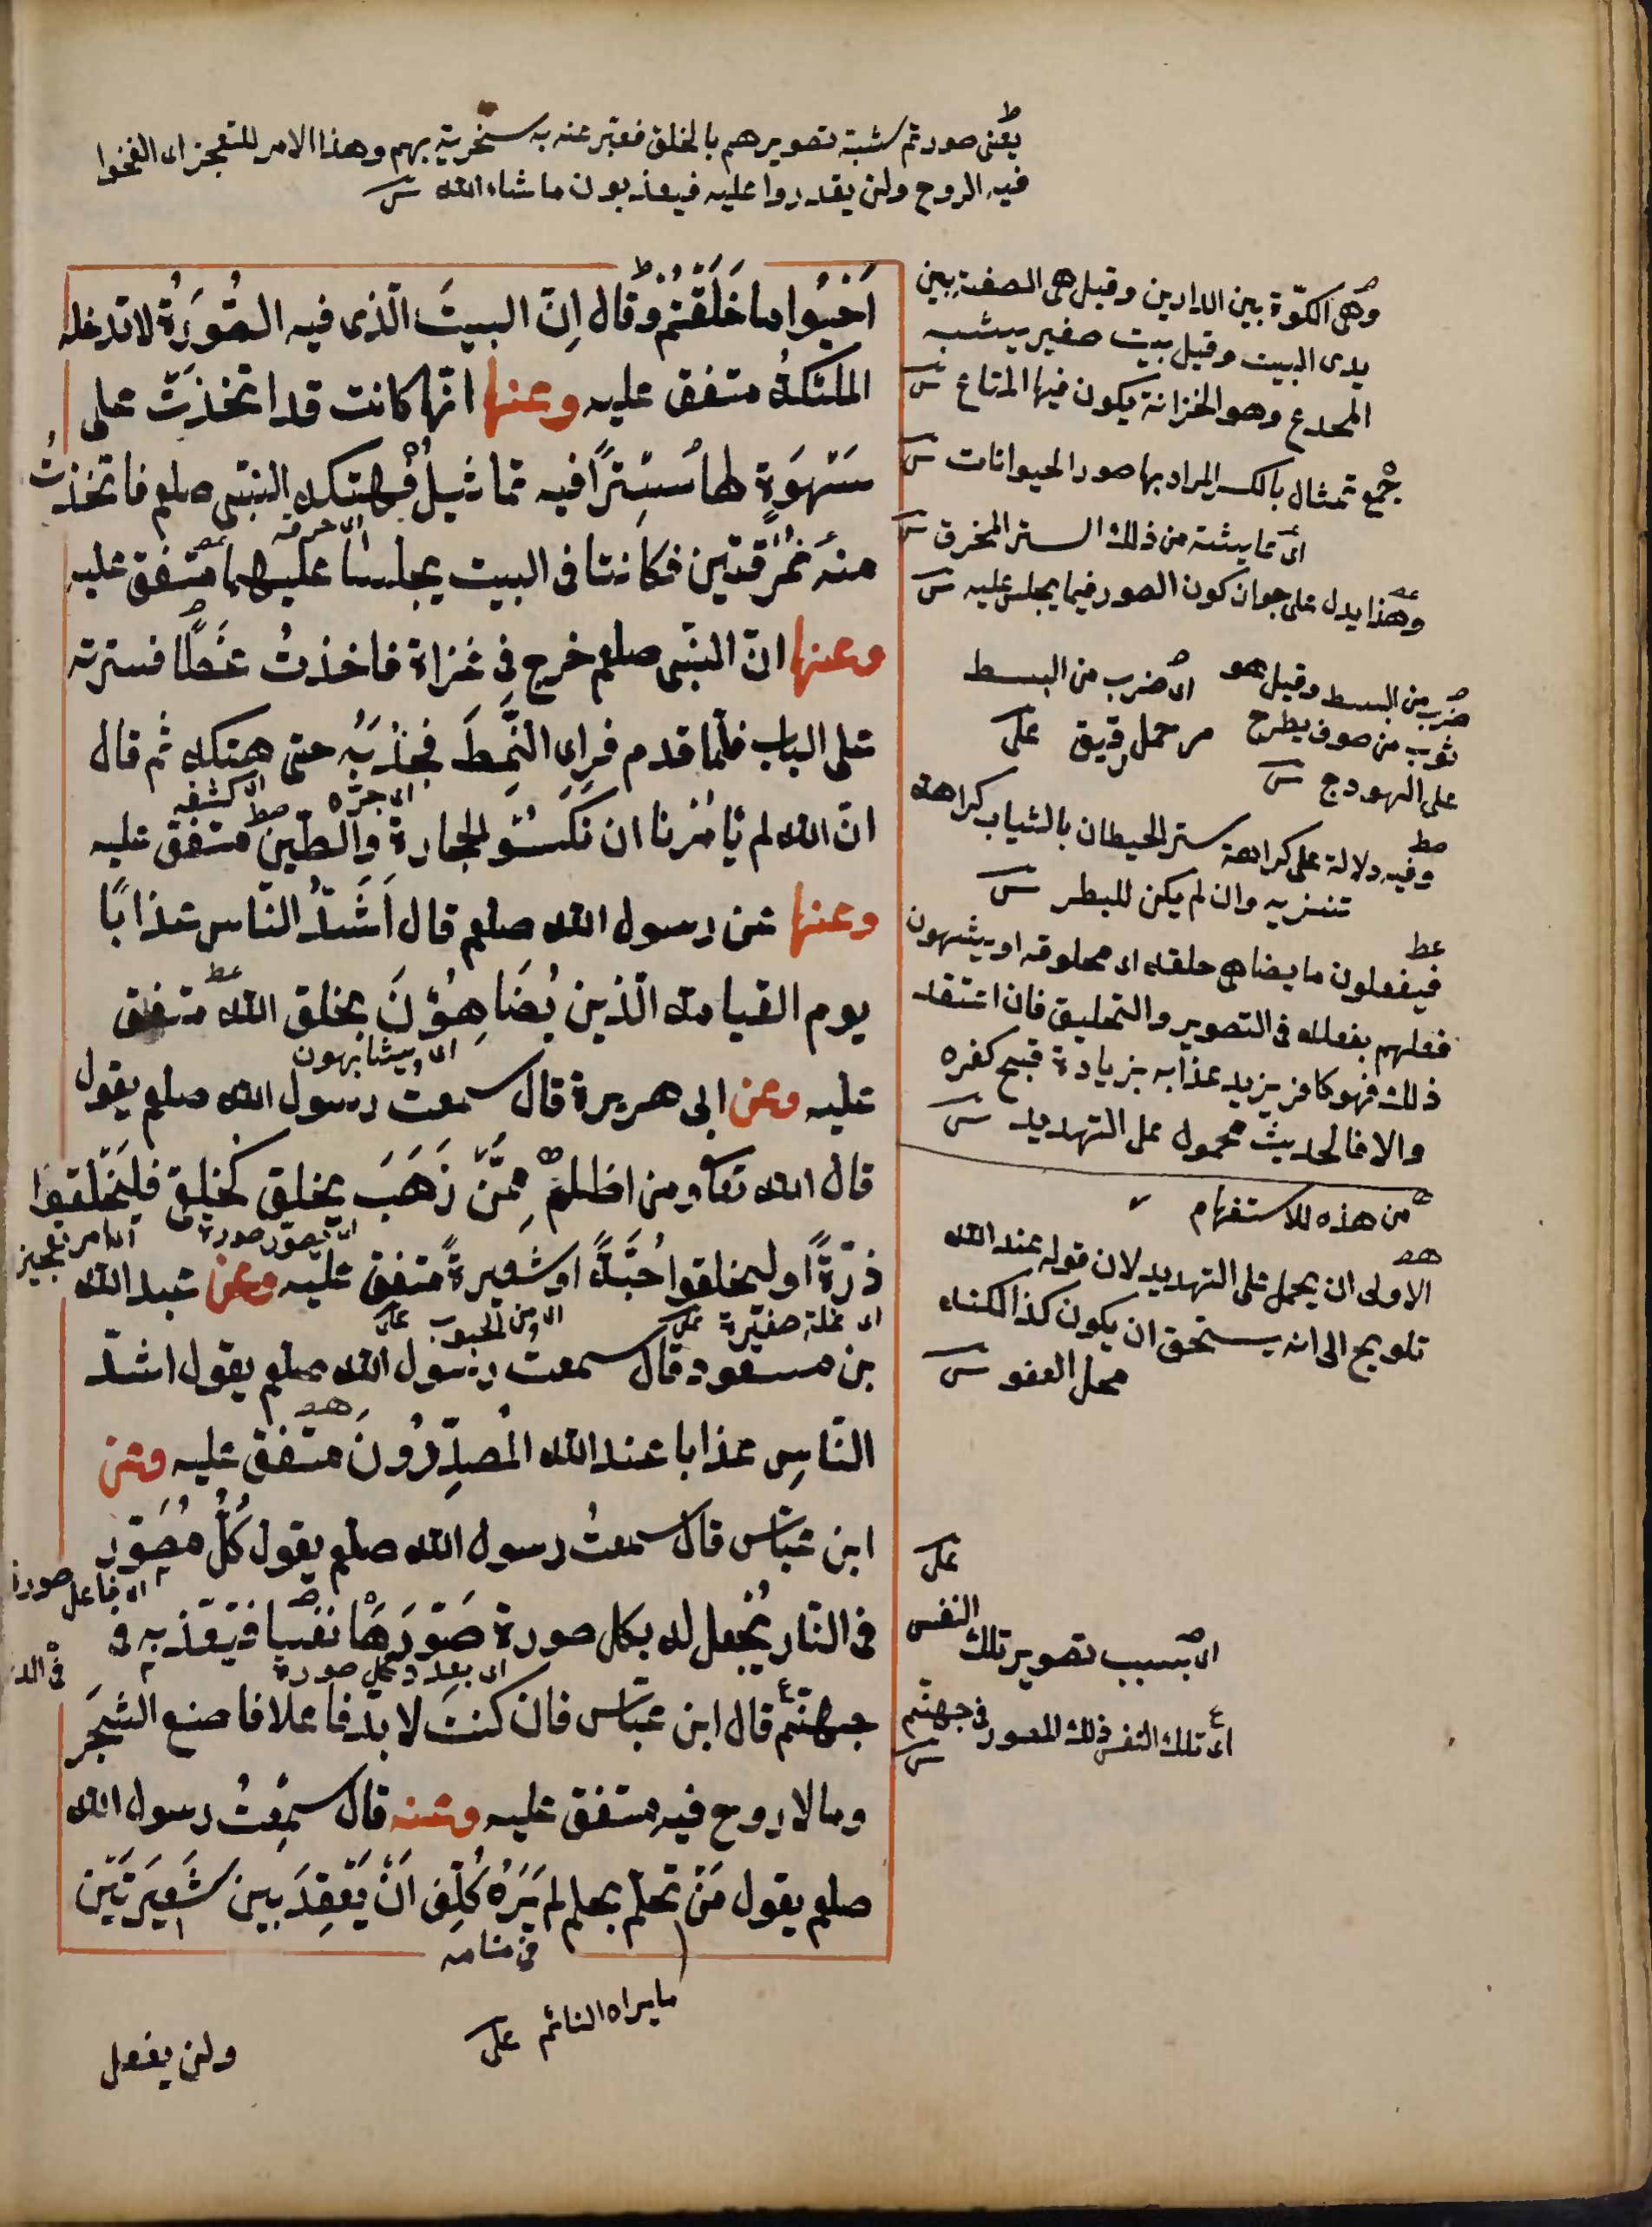 يعنى صورتم شبه تصويرهم بالخلق فعبر عنه به سخرية بهم وهذا الامر للتعجيز اى انفخوا
فيه الروح ولن يقدروا عليه فيعذبون ما شاء الله
اَحْيُوا ما خَلَقْتُمْ وقال اِنّ البيتَ الّذى فيه الصُّوَرَةُ لا تدخله
الملئكةُ متفق عليه وعنها انّها كانت قد اتخذَتْ على
سَهْوَةٍ لها سِتْرًا فيه تماثيلُ فهتكه النبى صلعم فاتخذتْ
منه نُمْرُقتين فكانتا فى البيت يجلس عليهما متفق عليه
وعنها انّ النبى صلعم خرج فى غزاة فاخذتُ نمطًا فسترته
على الباب فلمّا قدم فراى النَّمطَ فجذبَهُ حتى هتكه ثم قال
اى جرّه
انّ الله لم يَأمُرنا ان نكسُوَ الحجارةَ والطّين متفق عليه
وعنها عن رسول الله صلعم قال اَشَدُّ النّاس عذابًا
يوم القيامة الّذين يُضَاهِؤُنَ بخلق الله متفق
اى يشابهون
عليه وعن ابى هريرة قال سمعت رسول الله صلعم يقول
قال الله تعالى ومن اظلمُ مِمَّنْ ذَهَبَ يخلق كخلقى فليخلقوا
ذرّةً او ليخلقوا حَبَّةً او شعيرةً متفق عليه وعن عبد الله
اى نملة صغيرة
بن مسعود قال سمعت رسول الله صلعم يقول اشدّ
النّاسِ عذابا عند الله المُصوِّرُونَ متفق عليه وعن
ابن عبّاس قال سمعتُ رسول الله صلعم يقول كُلُّ مُصَوّرٍ
فى النّار يُجعل له بكل صورة صَوّرَهَا نفسا فيعذبه فى
اى بعدد كل صورة
جهنّم قال ابن عبّاس فان كنتَ لا بدّ فاعلا فاصنع الشجَر
وما لا روح فيه متفق عليه وعنه قال سمِعْتُ رسول الله
صلعم يقول مَنْ تحلّم بحلم لم يَرَهُ كُلِّفَ اَنْ يَعْقِدَ بين شَعيرَتَيْن
فى منامه
ما يراه النائم
ولن يفعل
وهى الكوّة بين الدارين وقيل هى الصفة بين
يدى البيت وقيل بيت صغير يشبه
المخدع وهو الخزانة يكون فيها المتاع
جمع تمثال بالكسر المراد بها صور الحيوانات
وهذا يدل على جواز كون الصور فيما يجلس عليه
ضرب من البسط وقيل هو
ثوب من صوف يطرح
على الهودج
اى ضرب من البسط
رقيق
وفيه دلالة على كراهة ستر الحيطان بالثياب كراهة
تنزيه وان لم يكن للبطر
فيفعلون ما يضاهى خلقه اى مخلوقه او يشبهون
فعلهم بفعله فى التصوير والتخليق فان اعتقد
ذلك فهو كافر يزيد عذابه بزيادة قبح كفره
والا فالحديث محمول على التهديد
من هذه للاستفهام
الاولى ان يحمل على التهديد لان قوله عند الله
تلويح الى انه يستحق ان يكون كذا لكنه
محل العفو
اى بسبب تصوير تلك النفس
اى تلك النفس ذلك المصور فى جهنم